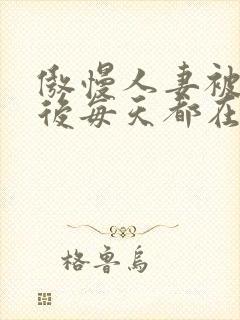 傲慢人妻被
後每天都在
格鲁乌